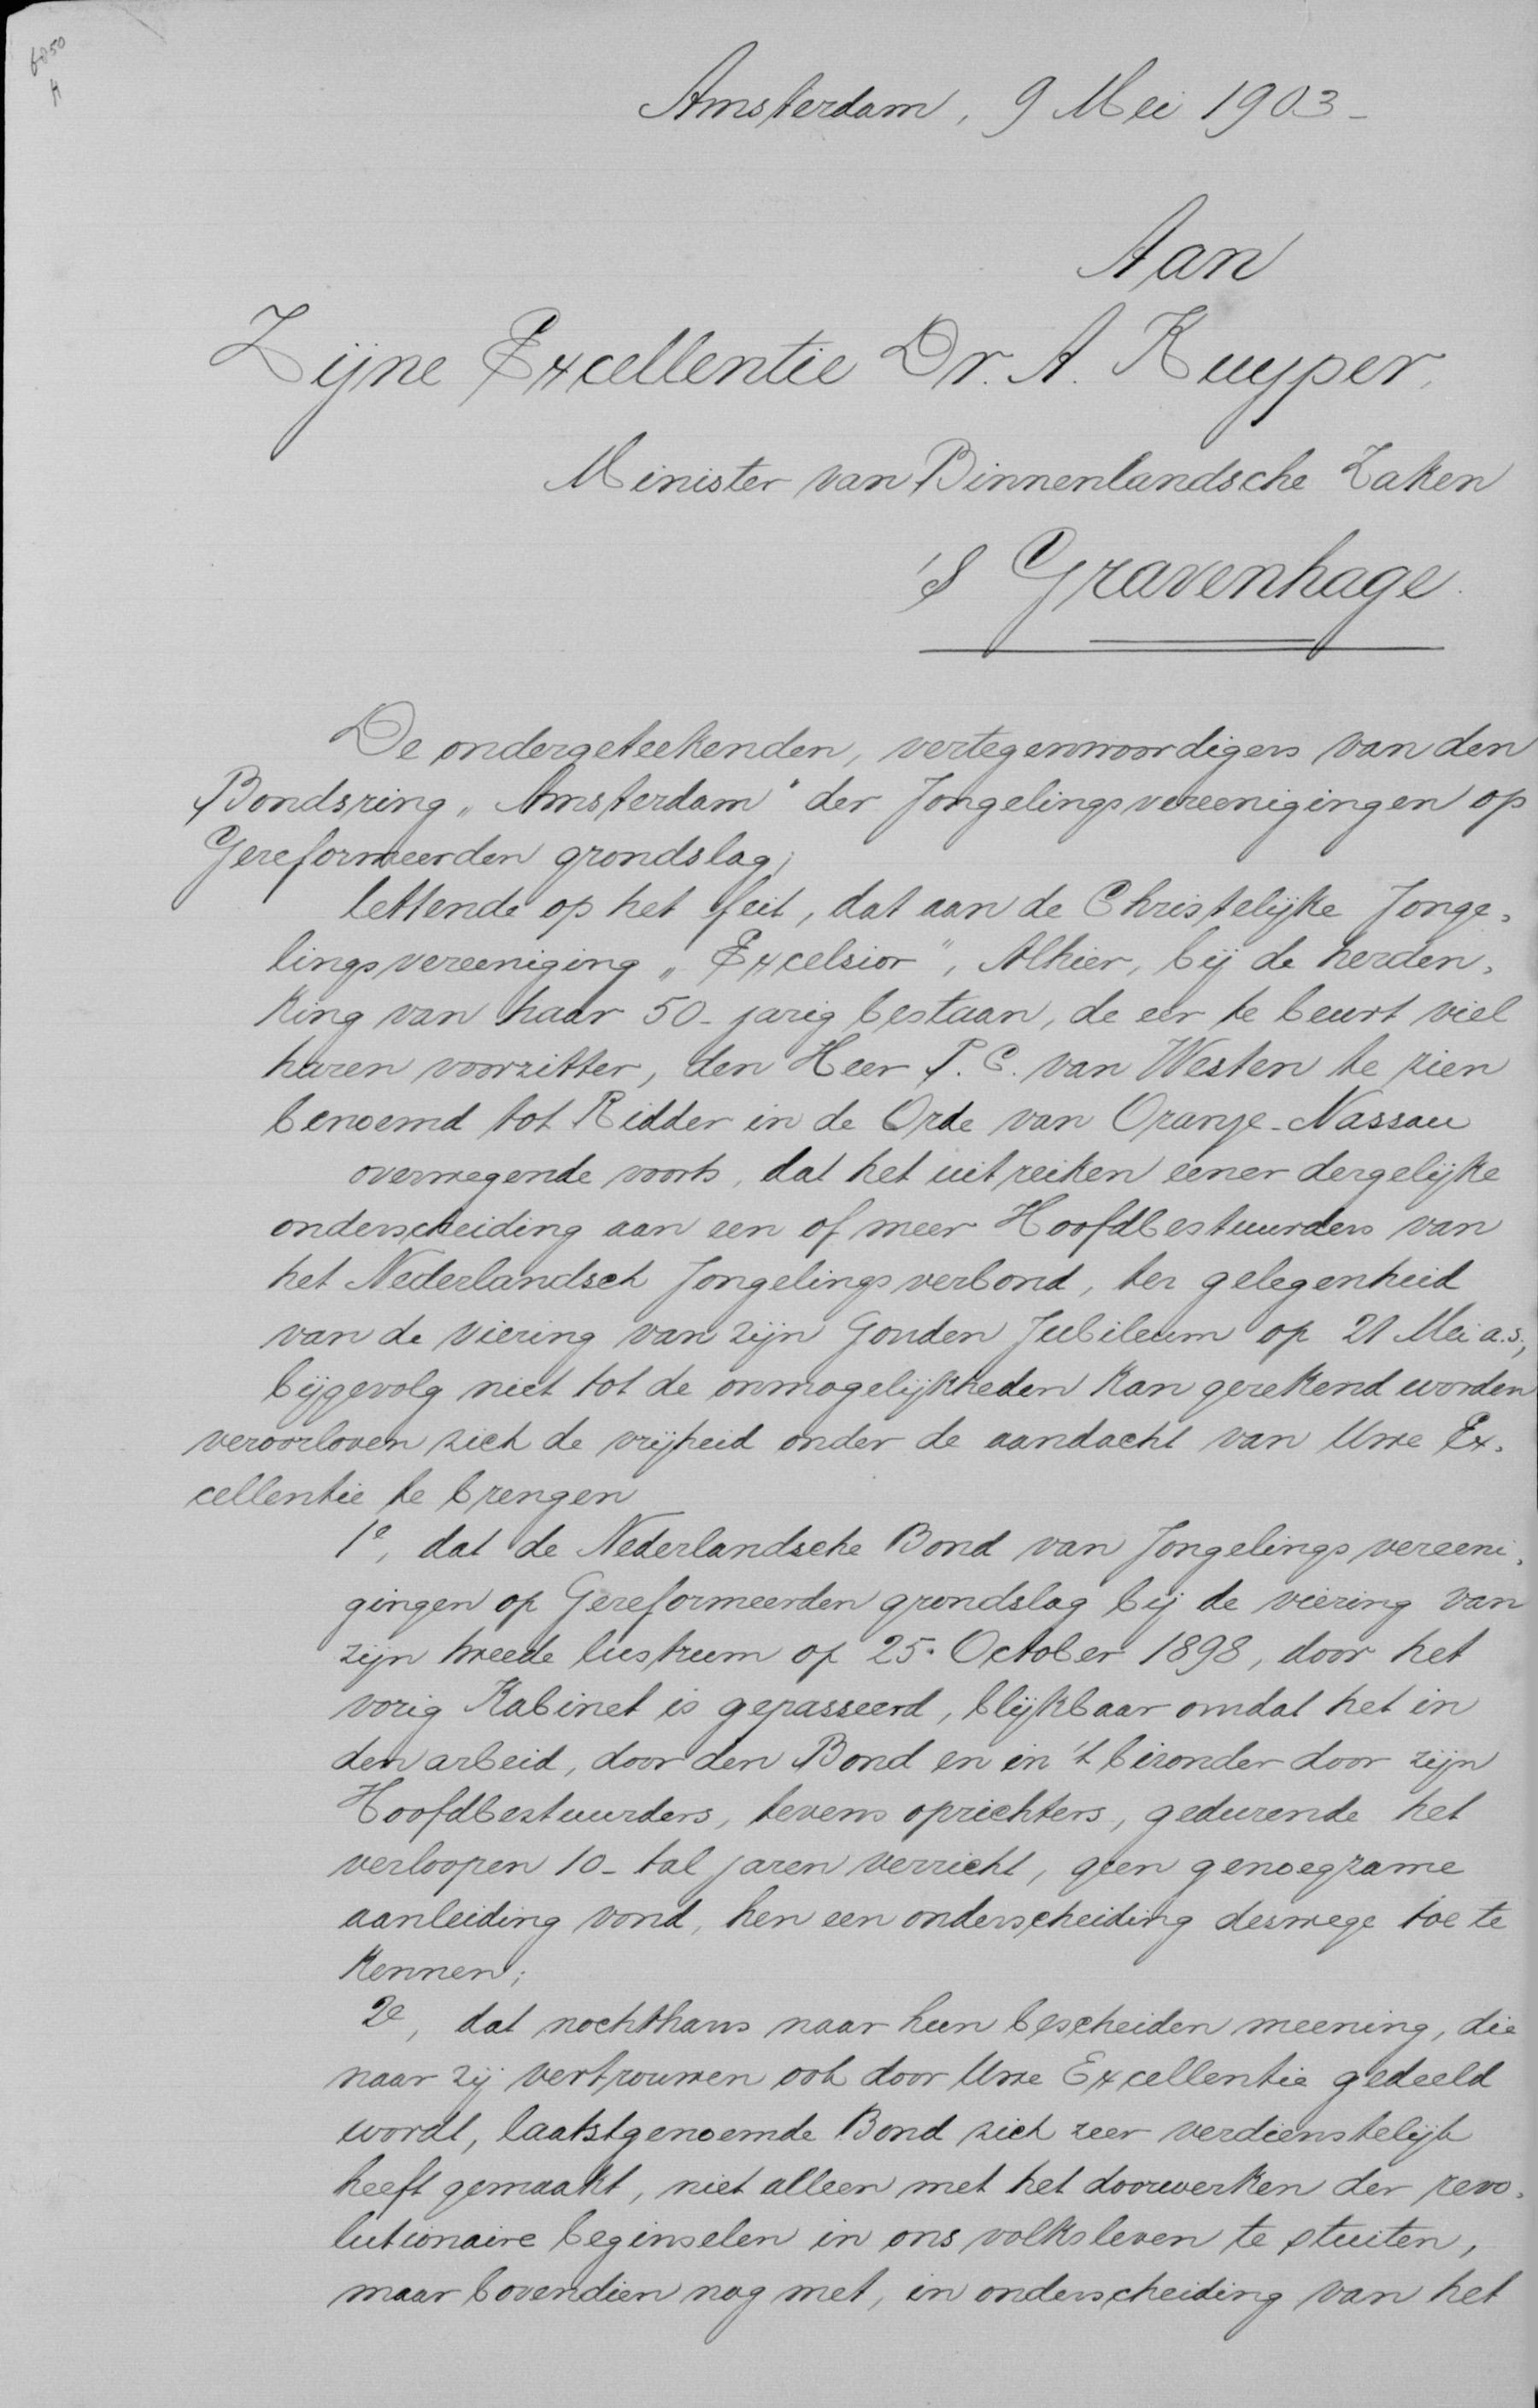 6050
A
Amsterdam, 9 Mei 1903 -
Aan
Zijne Excellentie Dr. A. Kuyper,
Minister van Binnenlandsche Zaken
's Gravenhage.
De ondergeteekenden, vertegenwoordigers van den
Bondsring „Amsterdam" der Jongelingsvereenigingen op
Gereformeerden grondslag;
lettende op het feit, dat aan de Christelijke Jonge-
lingsvereeniging „Excelsior", Alhier, bij de herden-
king van haar 50-jarig bestaan, de eer te beurt viel
haren voorzitter, den Heer P. C. van Westen te zien
benoemd tot Ridder in de Orde van Oranje-Nassau
overwegende voorts, dat het uitreiken eener dergelijke
onderscheiding aan een of meer Hoofdbestuurders van
het Nederlandsch Jongelingsverbond, ter gelegenheid
van de viering van zijn Gouden Jubileum op 21 Mei a.s.,
bijgevolg niet tot de onmogelijkheden kan gerekend worden
veroorloven zich de vrijheid onder de aandacht van Uwe Ex-
cellentie te brengen
1e, dat de Nederlandsche Bond van Jongelingsvereeni-
gingen op Gereformeerden grondslag bij de viering van
zijn tweede lustrum op 25 October 1898, door het
vorig Kabinet is gepasseerd, blijkbaar omdat het in
den arbeid, door den Bond en in 't bizonder door zijn
Hoofdbestuurders, tevens oprichters, gedurende het
verloopen 10-tal jaren verricht, geen genoegzame
aanleiding vond, hen een onderscheiding deswege toe te
kennen;
2e, dat nochthans naar hun bescheiden meening, die
naar zij vertrouwen ook door Uwe Excellentie gedeeld
wordt, laatstgenoemde Bond zich zeer verdienstelijk
heeft gemaakt, niet alleen met het doorwerken der revo-
lutionaire beginselen in ons volksleven te stuiten,
maar bovendien nog met, in onderscheiding van het